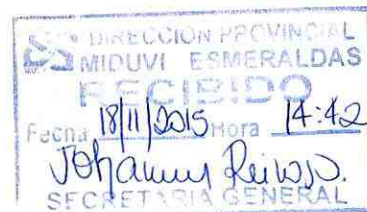 DIRECCION PROVINCIAL
MIDUVI ESMERALDAS
RECIBIDO
Fecha 18/11/2015 Hora 14:42
SECRETARIA GENERAL